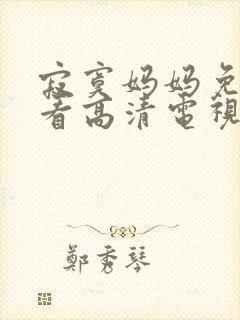 寂寞妈妈免
看高清電視
鄭秀琴